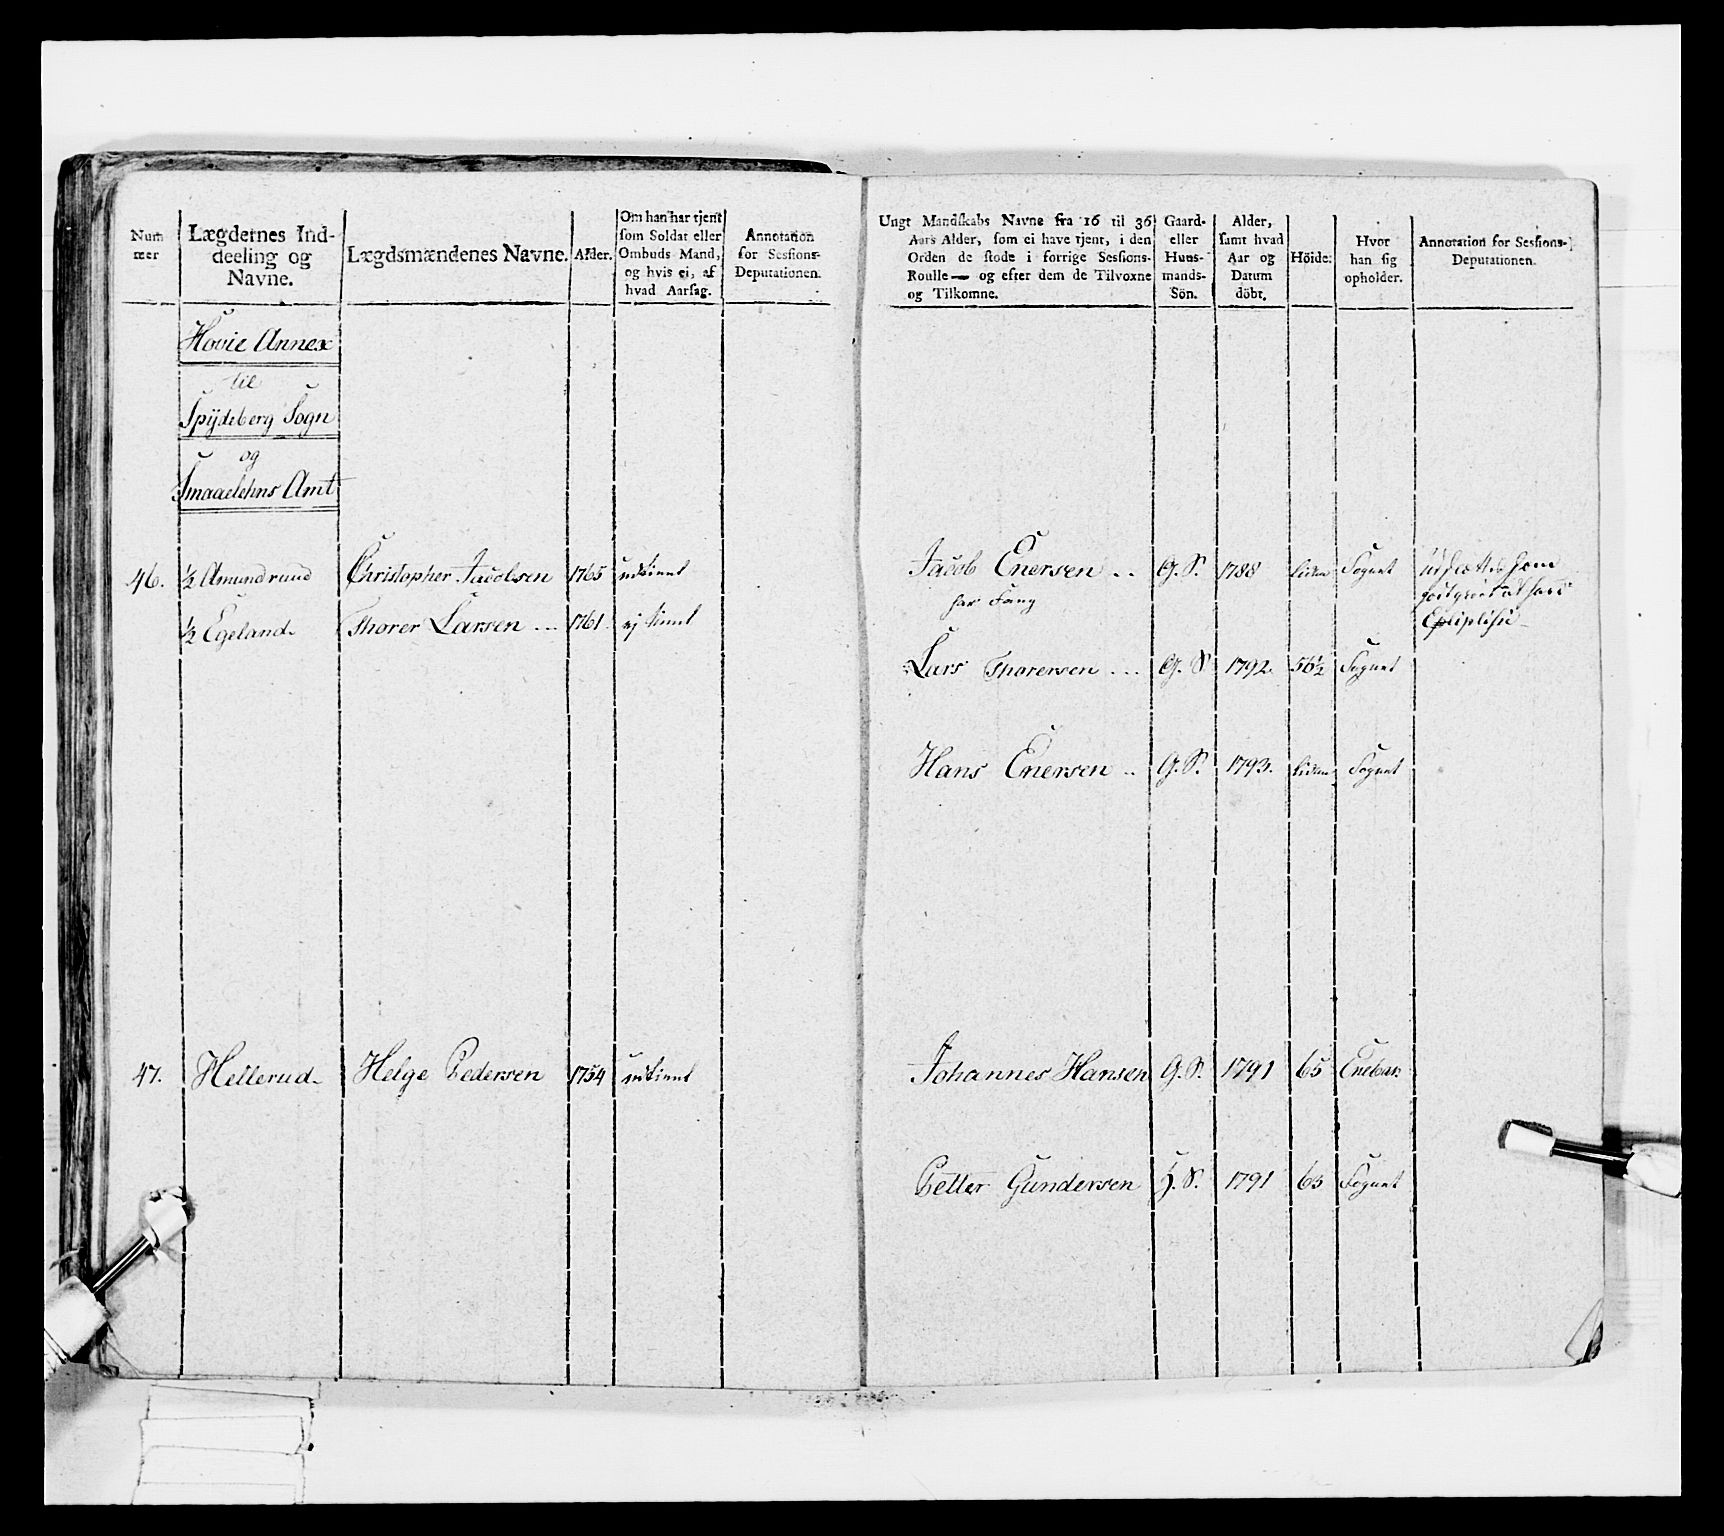 Num
mer
Lægdernes Ind-
deeling og
Navne.
Lægdsmændenes Navne.
Alder.
Om han har tjent
som Soldat eller
Ombuds Mand,
og hvis ei, af
hvad Aarsag.
Annotation
for Sessions-
Deputationen.
Hovie Annex
til
Spijdeberg Sogn
og
Smaalehns Amt
46. ½ Amundruud Christopher Jacobsen 1765 udtient
½ Egeland Thorer Larsen 1761 ej tient
47. Hellerud Helge Pedersen 1754 udtient
Ungt Mandskabs Navne fra 16 til 36
Aars Alder, som ei have tjent, i den
Orden de stode i forrige Sessions-
Roulle — og efter dem de Tilvoxne
og Tilkomne.
Gaard-
eller
Huus-
mands-
Sön.
Alder,
samt hvad
Aar og
Datum
döbt.
Höide.
Hvor
han sig
opholder.
Annotation for Sessions-
Deputationen.
Jacob Enersen .. G. S. 1788 liden Sognet
Lars Thorersen ... G. S 1792. 56½ Sognet
Hans Enersen .. G. S. 1793. liden Sognet
Johannes Hansen G. S. 1791 65 Enebak
Petter Gundersen H. S. 1791 63 Sognet